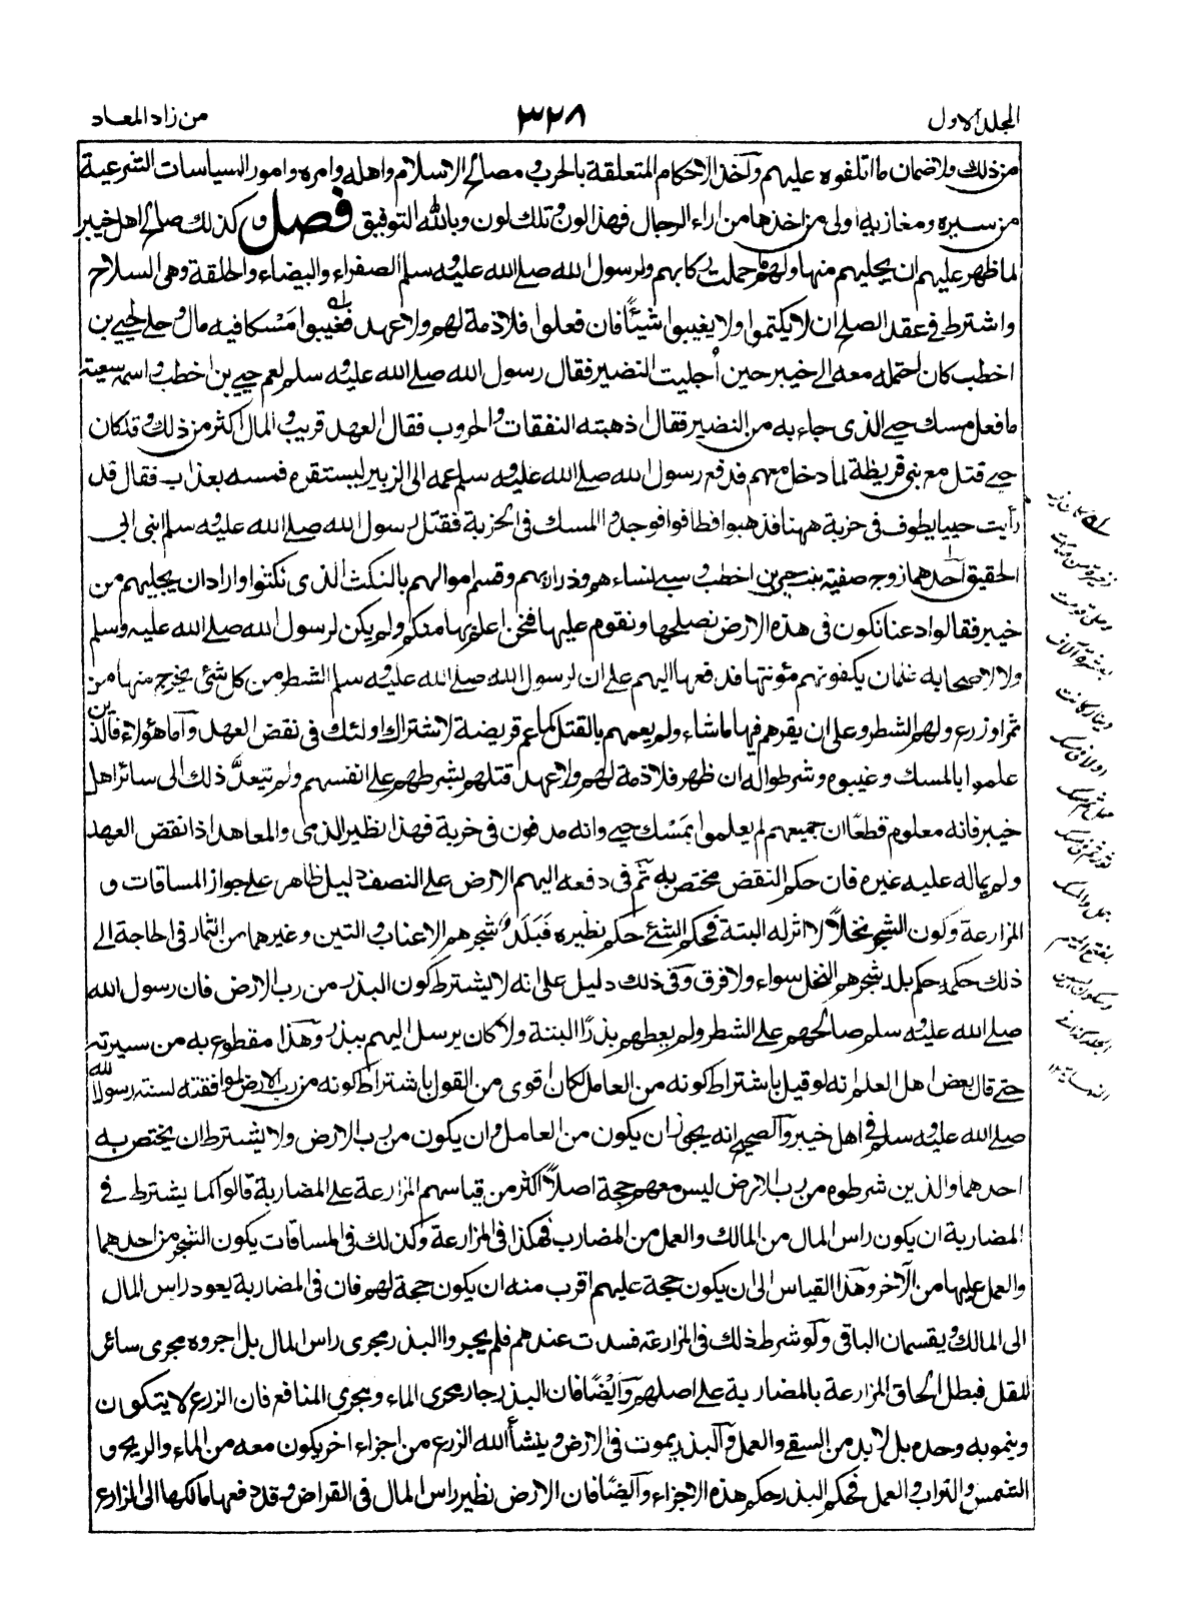 المجلد الاول ٣٢٨ من زاد المعاد
من ذلك ولا ضمان ما اتلفوه عليهم وآخذ الاحكام المتعلقة بالحرب ومصالح الاسلام واهله وامره وامور السياسات الشرعية
من سيره ومغازيه اولى من اخذها من اراء الرجال فهذا لون وتلك لون وبالله التوفيق فصل وكذلك صالح اهل خيبر
لما ظهر عليهم ان يجليهم منها ولهم ما حملت ركابهم ولرسول الله صلى الله عليه وسلم الصفراء والبيضاء والحلقة وهى السلاح
واشترط فى عقد الصلح ان لا يكتموا ولا يغيبوا شيئًا فان فعلوا فلا ذمة لهم ولا عهد فغيبوا مَسْكا فيه مال وحلى لحيى بن
اخطب كان احتمله معه الى خيبر حين اُجليت النضير فقال رسول الله صلى الله عليه وسلم لعم حيى بن اخطب واسمه سعية
ما فعل مسك حيى الذى جاء به من النضير فقال اذهبته النفقات والحروب فقال العهد قريب والمال اكثر من ذلك وقد كان
حيى قتل مع بنى قريظة لما دخل معهم فدفع رسول الله صلى الله عليه وسلم عمه الى الزبير ليستقره فمسه بعذاب فقال قد
رأيت حييا يطوف فى خربة ههنا فذهبوا فطافوا فوجدوا المسك فى الخربة فقتل رسول الله صلى الله عليه وسلم ابنى ابى
الحقيق احدهما زوج صفية بنت حيى بن اخطب وسبى نساءهم وذراريهم وقسم اموالهم بالنكث الذى نكثوا واراد ان يجليهم من
خيبر فقالوا دعنا نكون فى هذه الارض نصلحها ونقوم عليها فنحن اعلم بها منكم ولم يكن لرسول الله صلى الله عليه وسلم
ولا لاصحابه غلمان يكفونهم مؤنتها فدفعها اليهم على ان لرسول الله صلى الله عليه وسلم الشطر من كل شئ يخرج منها من
ثمر او زرع ولهم الشطر وعلى ان يقرهم فيها ما شاء ولم يعمهم بالقتل كما عم قريضة لاشتراك اولئك فى نقض العهد وآما هؤلاء فالذين
علموا بالمسك وغيبوه وشرطوا له ان ظهر فلا ذمة لهم ولا عهد قتلهم بشرطهم على انفسهم ولم يتعدّ ذلك الى سائر اهل
خيبر فانه معلوم قطعًا ان جميعهم لم يعلموا بمَسْك حيى وانه مدفون فى خربة فهذا نظير الذمى والمعاهد اذا نقض العهد
ولم يماله عليه غيره فان حكم النقض مختص به ثم فى دفعه اليهم الارض على النصف دليل ظاهر على جواز المساقات و
المزارعة وكون الشجر نخلًا لا اثر له البتة فحكم الشئ حكم نظيره فبلد شجرهم الاعناب والتين وغيرهما من الثمار فى الحاجة الى
ذلك حكمه حكم بلد شجرهم النخل سواء ولا فرق وفى ذلك دليل على انه لا يشترط كون البذر من رب الارض فان رسول الله
صلى الله عليه وسلم صالحهم على الشطر ولم يعطهم بذرًا البتة ولا كان يرسل اليهم ببذر وهذا مقطوع به من سيرته
حتى قال بعض اهل العلم انه لو قيل باشتراط كونه من العامل لكان اقوى من القول باشتراط كونه من رب الارض لموافقته لسنة رسول الله
صلى الله عليه وسلم فى اهل خيبر والصحيح انه يجوز ان يكون من العامل وان يكون من رب الارض ولا يشترط ان يختص به
احدهما والذين شرطوه من رب الارض ليس معهم حجة اصلًا اكثر من قياسهم المزارعة على المضاربة قالوا كما يشترط فى
المضاربة ان يكون راس المال من المالك والعمل من المضارب فهكذا فى المزارعة وكذلك فى المساقات يكون الشجر من احدهما
والعمل عليها من الآخر وهذا القياس الى ان يكون حجة عليهم اقرب منه ان يكون حجة لهم فان فى المضاربة يعود راس المال
الى المالك ويقسمان الباقى ولو شرط ذلك فى المزارعة فسدت عندهم فلم يجروا البذر مجرى راس المال بل اجروه مجرى سائر
للقل فبطل الحاق المزارعة بالمضاربة على اصلهم وايضًا فان البذر جار مجرى الماء ومجرى المنافع فان الزرع لا يتكون
وينمو به وحده بل لا بد من السقى والعمل والبذر يموت فى الارض وينشأ الله الزرع من اجزاء اخر يكون معه من الماء والريح و
الشمس والتراب والعمل فحكم البذر حكم هذه الاجزاء وآيضًا فان الارض نظير راس المال فى القراض وقد دفعها مالكها الى المزارع